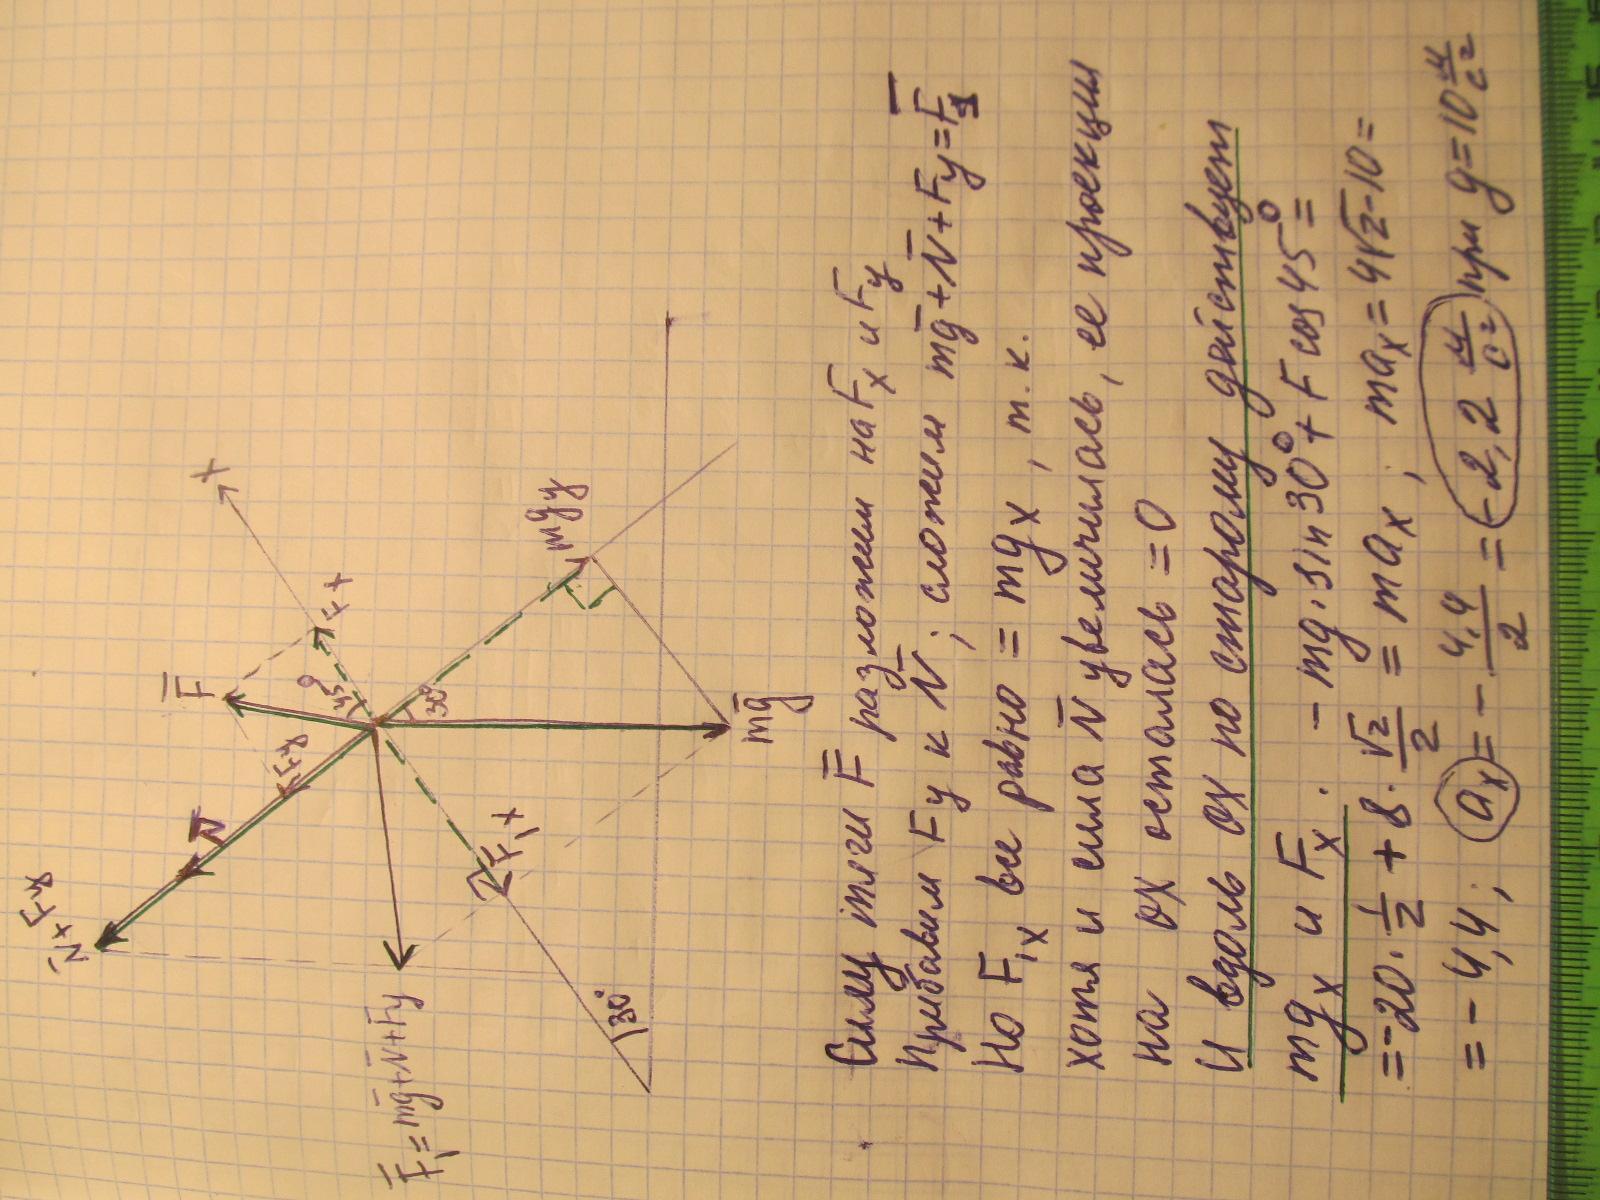 X
F̄
F̄x
45°
N̄+Fy
N̄
Fy
30°
mgy
F̄₁x
F̄₁=mḡ+N̄+F̄y
mḡ
30°
Силу тяги F̄ разложим на F̄x и F̄y
Прибавим Fy к N̄; сложим mḡ+N̄+Fy=F̄₁
Но F₁x все равно = mgx, т.к.
хотя и сила N̄ увеличилась, ее проекции
на ох осталась =0
И вдоль ох по старому действует
mgx и Fx. -mg·sin30°+Fcos45°=
=-20·1/2+8·√2/2=max; max=4√2-10=
=-4,4; ax=-4,4/2=-2,2 м/с² при g=10 м/с²